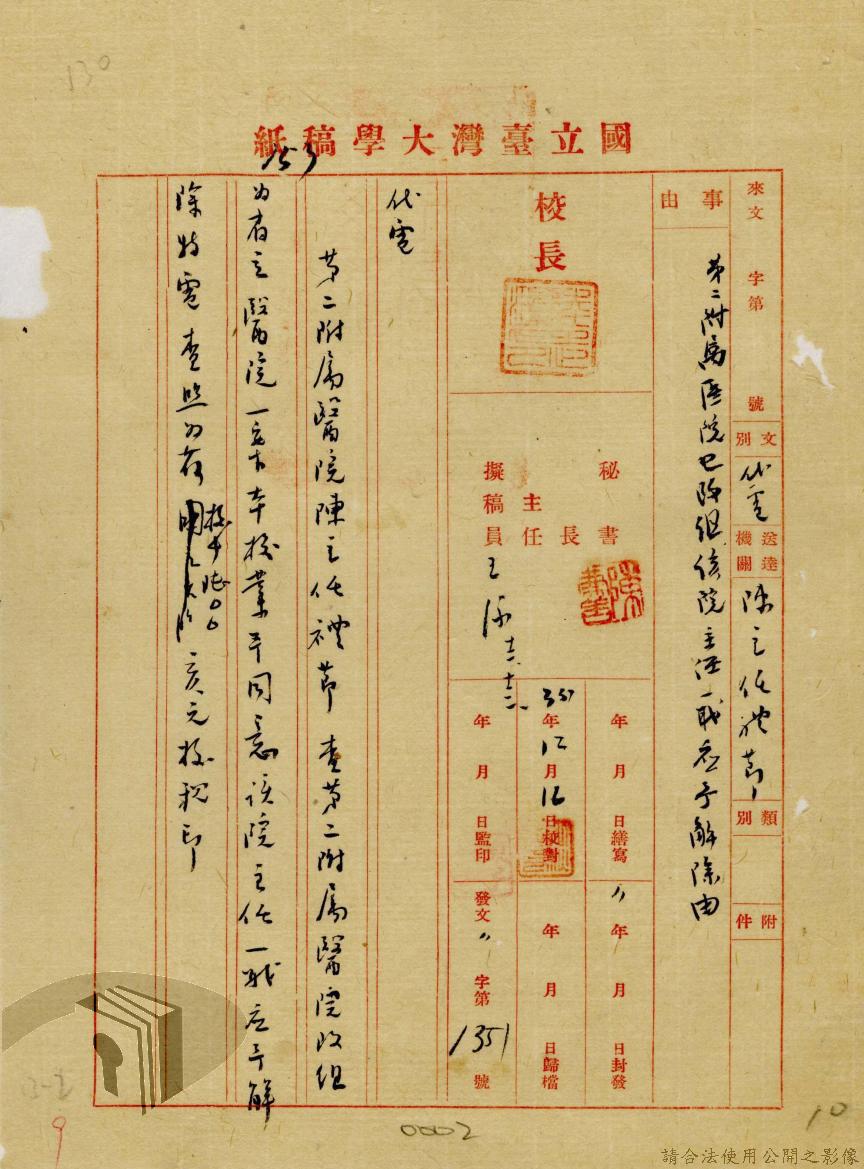 130
國立臺灣大學稿紙
來文 字第 號
文別 代電
送達機關 陳主任禮節
類別
附件
事由
第二附屬医院已改組該院主任一職应予解除由
校長
秘書
主任
秘書長
擬稿員 王
年 月 日繕寫
年 月 日封發
35年12月16日校對
年 月 日歸檔
年 月 日監印
發文 字第1351號
代電
第二附屬醫院陳主任禮節 查第二附屬醫院改組
为省立醫院一案本校業予同意該院主任一職应予解
除特電查照为荷 亥元校秘印
0002
10
9
請合法使用公開之影像